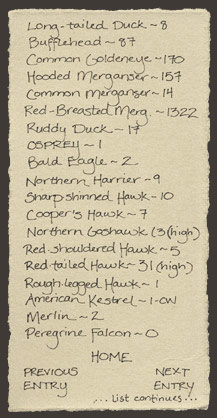 Long-tailed Duck ~ 8
Bufflehead ~ 87
Common Goldeneye ~170
Hooded Merganser ~ 157
Common Merganser ~ 14
Red-Breasted Merg. ~ 1322
Ruddy Duck ~ 17
OSPREY ~ 1
Bald Eagle ~ 2
Northern Harrier ~ 9
Sharpshinned Hawk ~ 10
Cooper's Hawk ~ 7
Northern Goshawk (3(high)
Red-shouldered Hawk ~ 5
Red-tailed Hawk ~ 31 (high)
Rough-legged Hawk ~ 1
American Kestrel ~ 1-ON
Merlin ~ 2
Peregrine Falcon ~ 0
HOME
PREVIOUS ENTRY
NEXT ENTRY
... List continues...